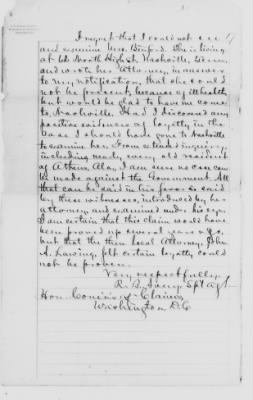 I regret that I could not see
and examine Mrs. Binford. She is living
at 66 North High St. Nashville, Tenn,
and wrote her Attorney, in answer
to my notification, that she could
not be present, because of ill health,
but would be glad to have me come
to Nashville. Had I discovered any
positive evidence of loyalty in the
case I should have gone to Nashville
to examine her. From extended inquiry,
including nearly every old resident
of Athens, Ala, I am sure no case can
be made against the Government. All
that can be said in his favor is said
by these witnesses, introduced by her
attorney and examined under his eye.
I am certain that this claim would have
been proved up several years ago,
but that the then local Attorney, John
A. Lawing, felt certain loyalty could
not be proven.
Very respectfully
R. B. Spl Agt
Hon. Com'rs of Claims
Washington D.C